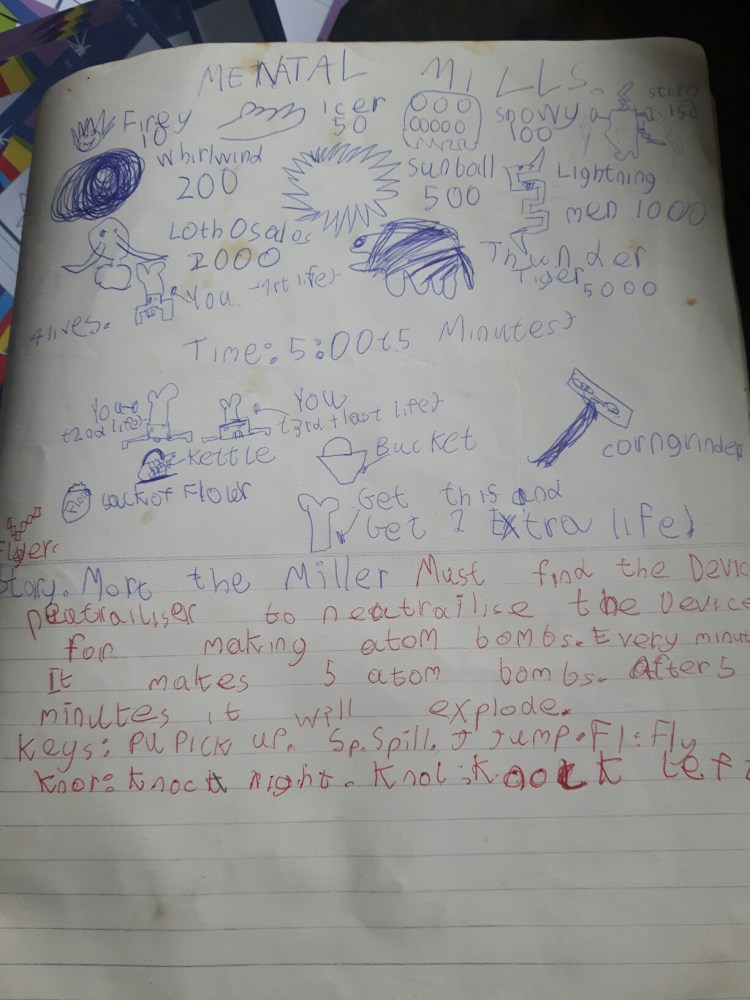 MENTAL MILLS.
Firey 10
icer 50
snowy 100
storm 150
Whirlwind 200
Sunball 500
Lightning men 1000
Thunder Tiger 5000
2000
4 lives.
You (1st life)
Time: 5:00 (5 Minutes)
You (2nd life)
You (3rd + last life)
Kettle
Bucket
corngrinder
sack of Flour
Get this and
Get 1 Extra life)
Flyer.
Story. Mort the Miller Must find the Device
neutrailiser to neutrailise the Device
for making atom bombs. Every minute
It makes 5 atom bombs. After 5
minutes it will explode.
Keys: PU PICK up. Sp. Spill. J Jump. Fl: Fly
Knor: Knock right. Knol: Knock left